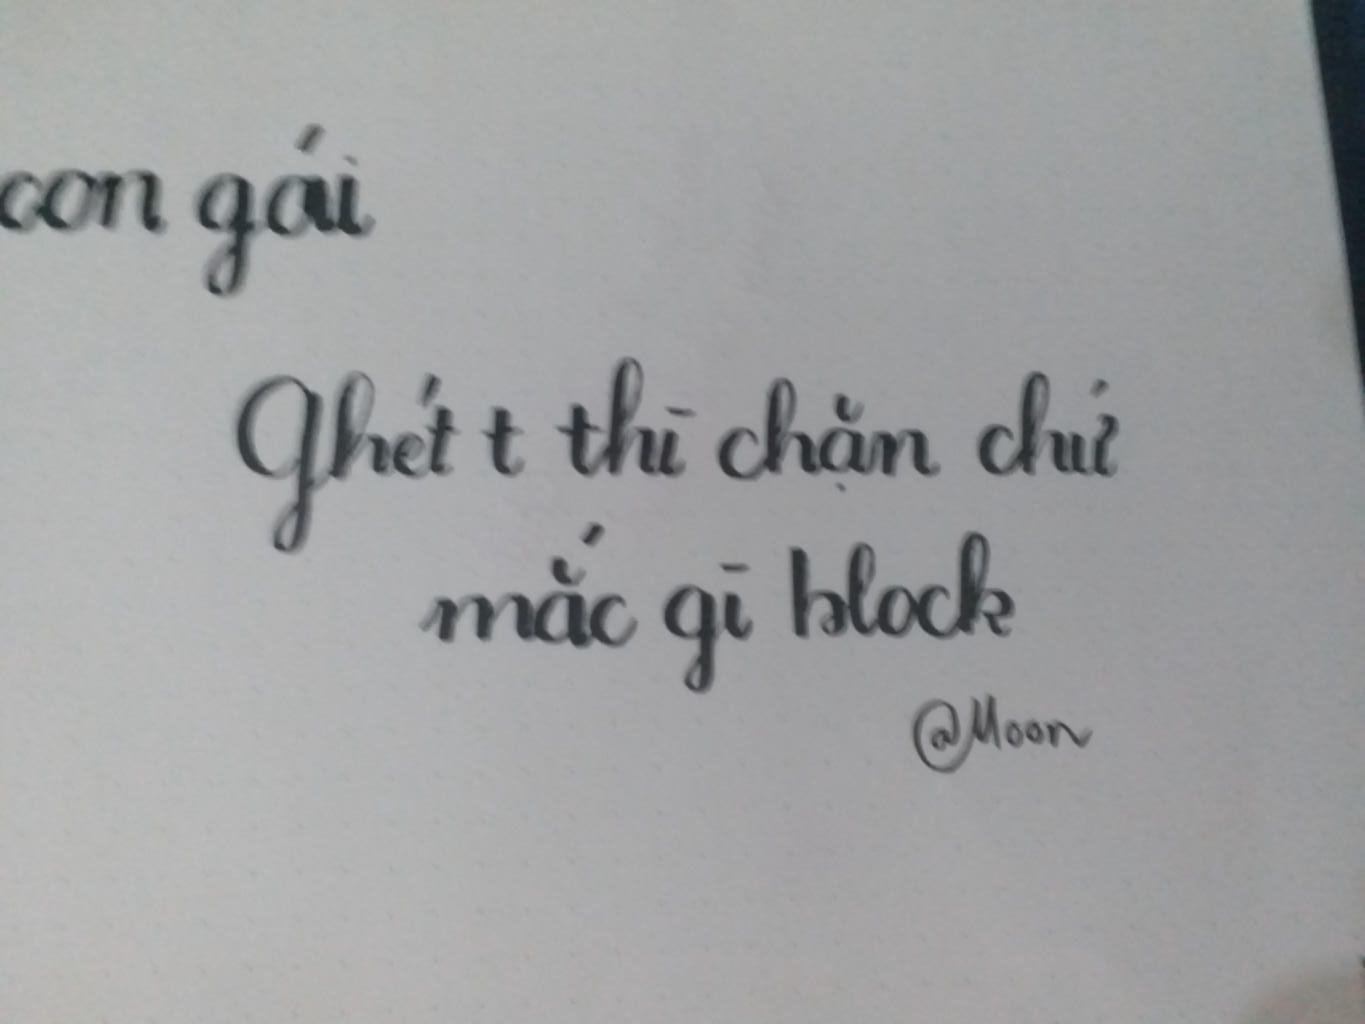 con gái
Ghét t thì chặn chứ
mắc gì block
@Moon